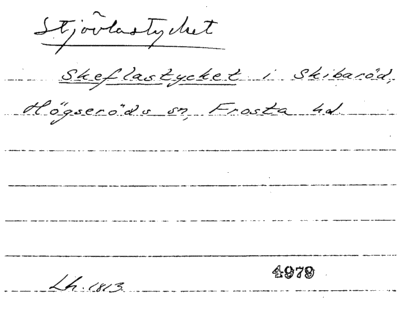 Stjövlastycket
Skeflastycket i Skibaröd,
Högseröds sn, Frosta hd.
Lh. 1813
4979